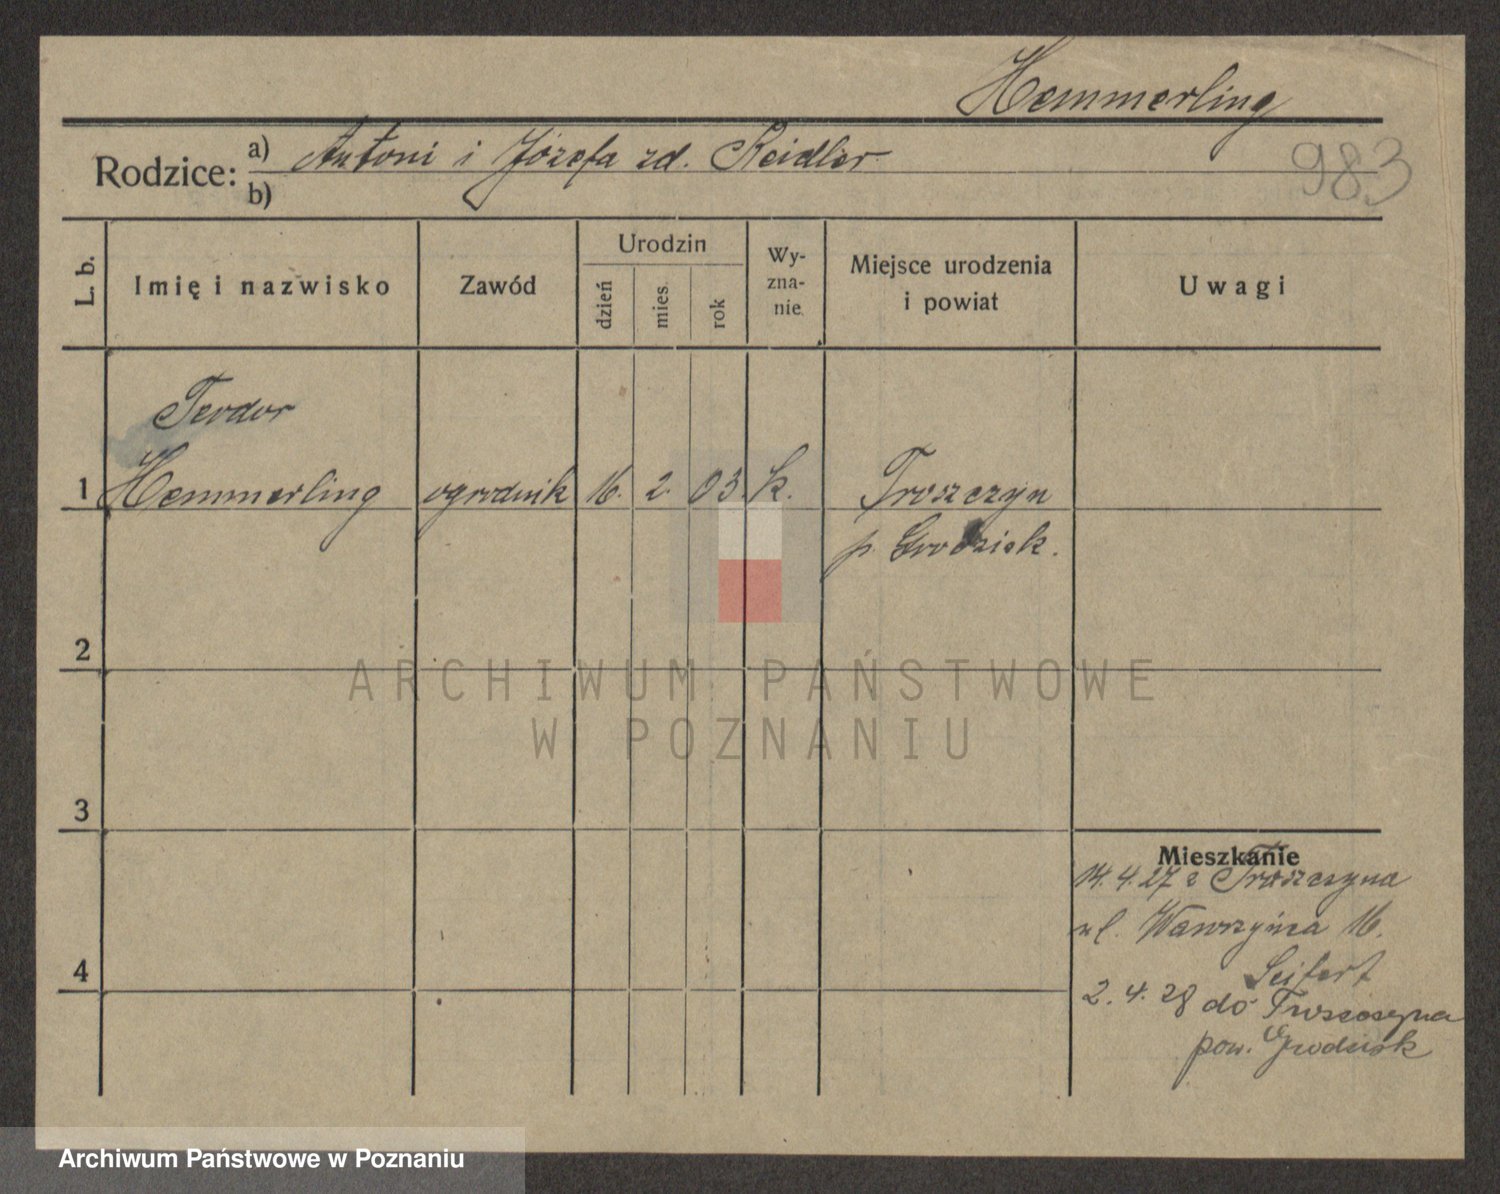 Hemmerling
Rodzice: a) Antoni i Józefa zd. Reidler
b)
983
L. b.
Imię i nazwisko
Zawód
Urodzin
dzień
mies.
rok
Wy-
zna-
nie
Miejsce urodzenia
i powiat
Uwagi
Teodor
1 Hemmerling ogrodnik 16. 2. 03. k. Troszczyn
p. Grodzisk.
2
3
4
Mieszkanie
14.4.27 z Troszczyna
ul. Wawrzyńca 16.
Seifert
2.4.28 do Troszczyna
pow. Grodzisk
ARCHIWUM PAŃSTWOWE
W POZNANIU
Archiwum Państwowe w Poznaniu